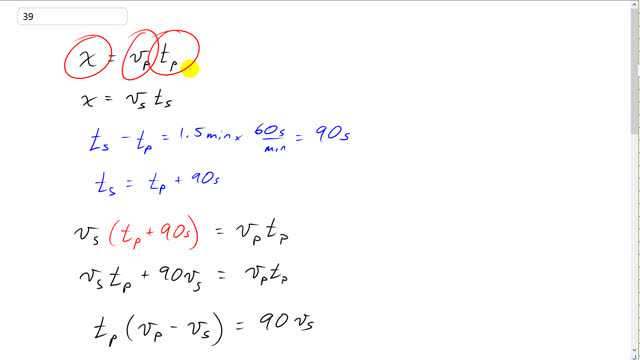 39
x = v_p t_p
x = v_s t_s
t_s - t_p = 1.5 min × 60s/min = 90s
t_s = t_p + 90s
v_s (t_p + 90s) = v_p t_p
v_s t_p + 90 v_s = v_p t_p
t_p (v_p - v_s) = 90 v_s